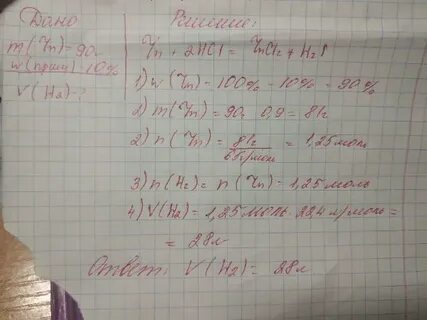 Дано
Решение:
m(Zn)=90г
w(прим)=10%
V(H2)=?
Zn + 2HCl = ZnCl2 + H2↑
1) w(Zn) = 100% - 10% = 90%
2) m(Zn) = 90г · 0,9 = 81г
2) n(Zn) = 81г / 65г/моль = 1,25моль
3) n(H2) = n(Zn) = 1,25моль
4) V(H2) = 1,25моль · 22,4 л/моль =
= 28л
Ответ: V(H2) = 28л